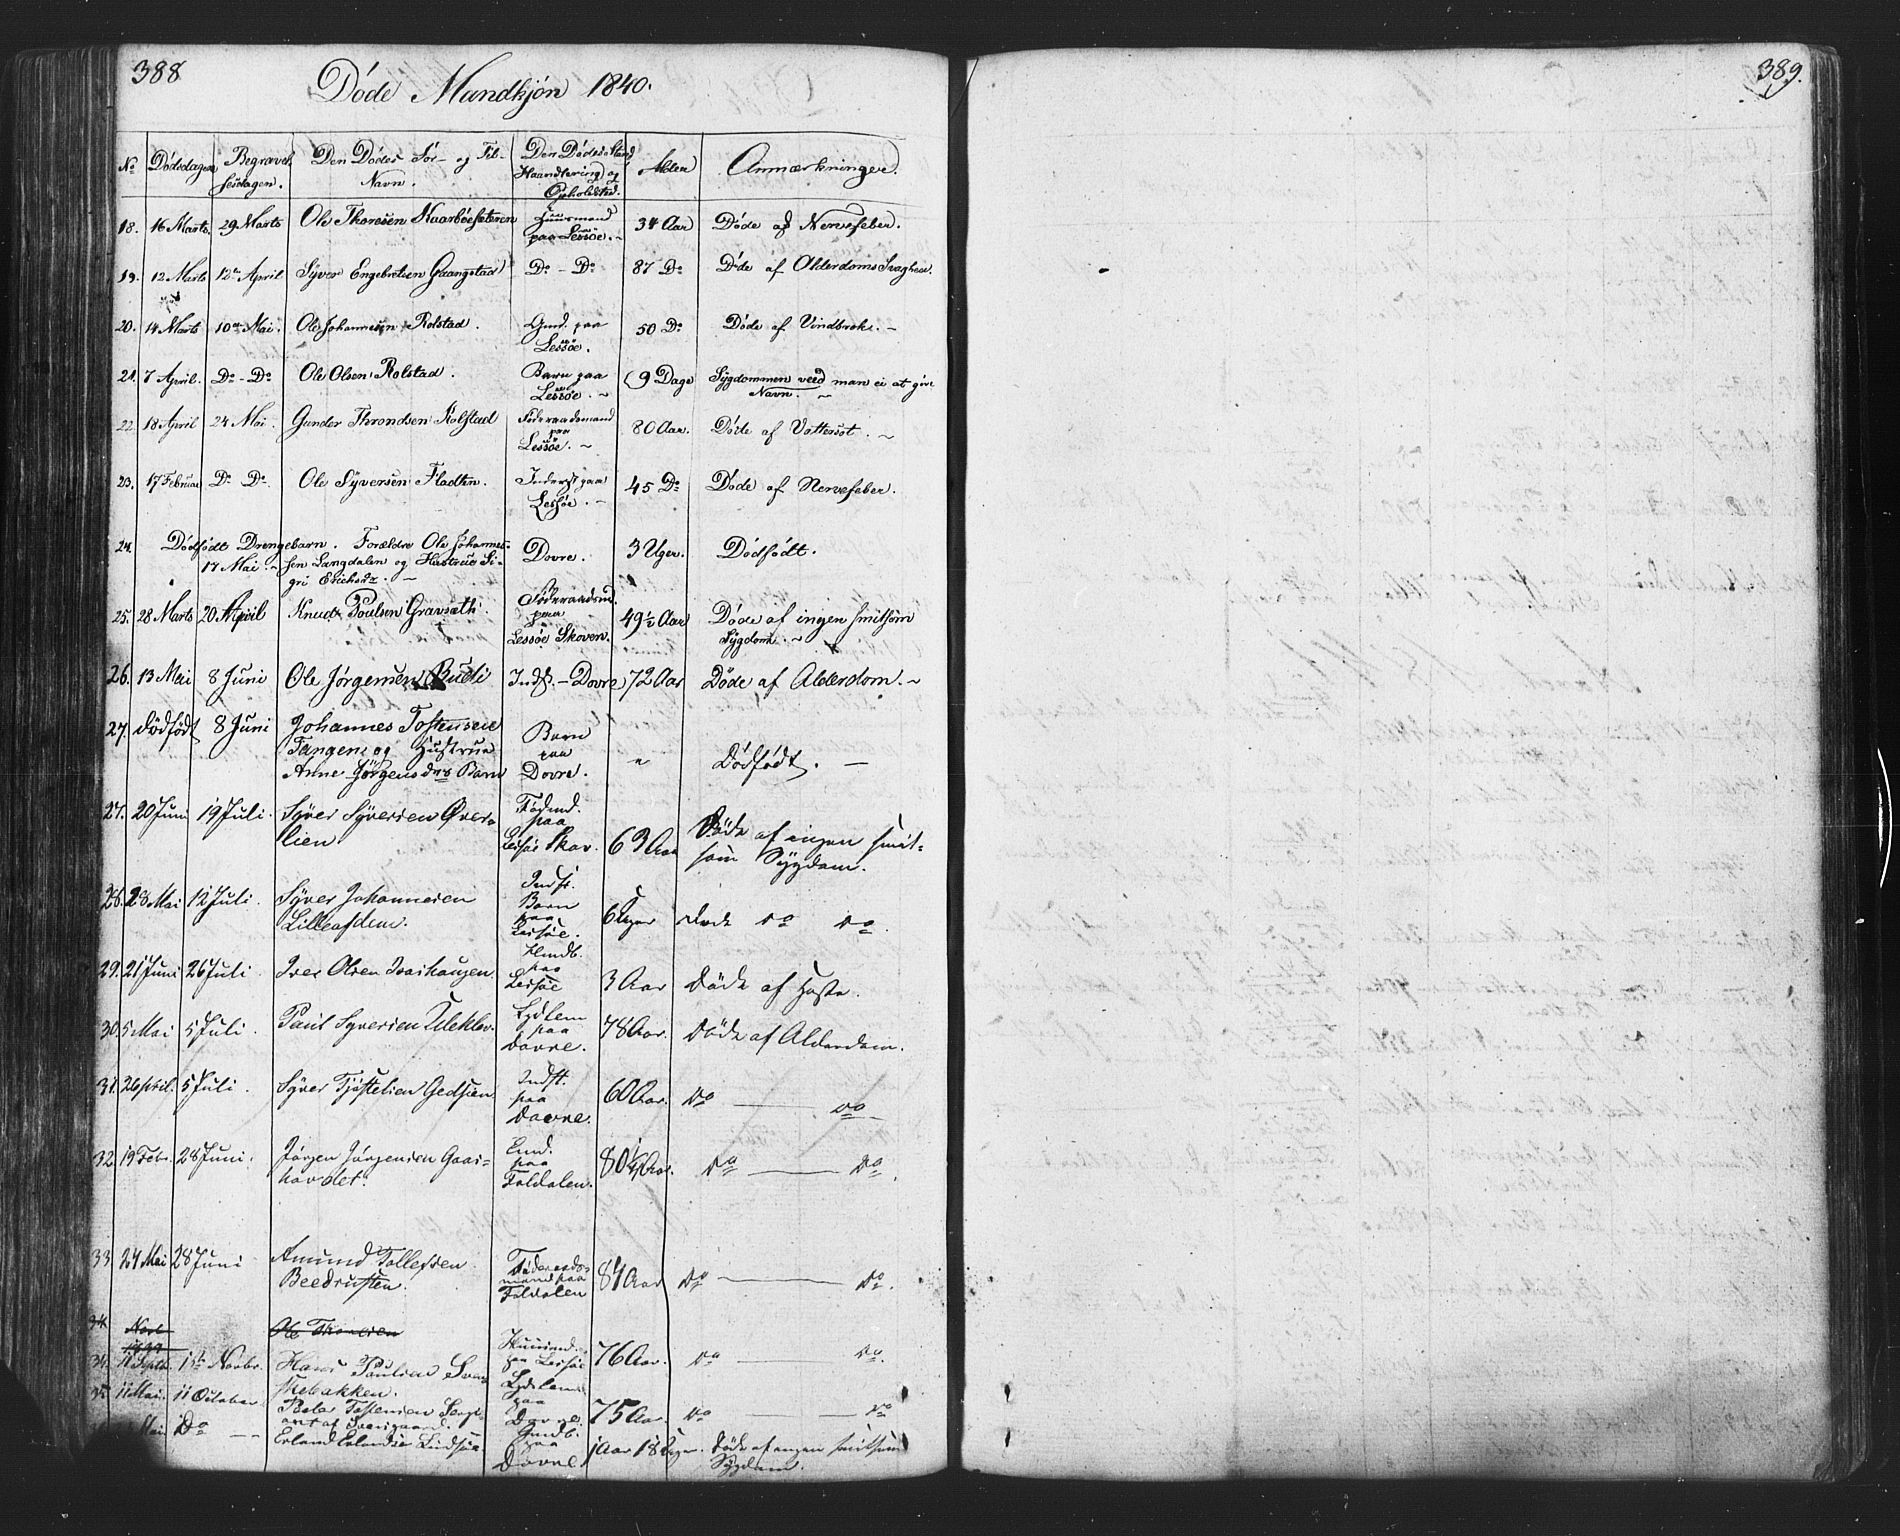 388
Döde Mandkjön 1840.
No Dödsdagen Begravelsesdagen. Den Dödes For- og Til-Navn. Den Dödes Stand Haandtering og Opholdsted. Alder Anmærkninger.
18. 16 Marts 29 Marts Ole Thoresen Huusmand paa Lessöe. 34 Aar Döde af Nervefeber.
19. 12 Marts 12te April Syver Engebretsen Gaangstad Do - Do 87 Do Döde af Alderdoms Svaghed.
20. 14 Marts 10de Mai. Ole Johannesen Rolstad. Gmd. paa Lessöe. 50 Do Döde af Vindbrok. -
21. 7 April. Do - Do Ole Olsen Rolstad. Barn paa Lessöe. 9 Dage Sygdommen veed man ei at give Navn.
22 18 April 24 Mai. Gunder Throndsen Rolstad Föderaadsmand paa Lessöe. 80 Aar. Döde af Vattersot.
23. 17 Februar Do Do. Ole Syversen Fladten. Inderst paa Lessöe. 45 Do Döde af Nervefeber.
24. Dödfödt Drengebarn. Forældre Ole Johannes-
17 Mai. sen Langdalen og Hustrue Si-
gri Erichsdr. Dovre. 3 Uger. Dödfödt.
25. 28 Marts 20 April Knud Poulsen Gravsæth. Föderaadsmd. paa Lessöe Skoven. 49½ Aar Döde af ingen smitsom Sygdom.
26. 13 Mai 8 Juni Ole Jörgensen Budli Indst. - Dovre 72 Aar Döde af Alderdom.
27. dödfödt 8 Juni Johannes Tostensen
Tangen og Hustrue
Anne Jörgensdrs Barn Barn paa Dovre. " Dödfödt. -
27. 20 Juni 19 Juli. Syver Syversen Över-
lien Födmd. paa Lessöe Skov. 63 Aar Döde af ingen smit-
som Sygdom.
28. 28 Mai 12 Juli. Syver Johannesen
Indst. Barn paa Lessöe. 6 Uger Döde do do.
29. 21 Juni 26 Juli. Iver Olsen paa Lessöe 3 Aar Döde af Hoste.
30. 5 Mai 5 Juli. Paul Syversen Lydlem paa Dovre. 78 Aar. Döde af Alderdom.
31. 26 April. 5 Juli. Syver Gedsien Indst. paa Dovre. 60 Aar. Do — do
32. 19 Febr. 28 Juni. Jörgen Jörgensen Gaas-
hovdet. Gmd. paa Foldalen. 80½ Aar. Do — Do.
33. 24 Mai 28 Juni Amund Tollefsen
Föderaads-
mand paa Foldalen 84 Aar Do — Do.
34. Ole
34. 11 Septb. 1ste Novbr. Hans Paulsen
Huusmd. paa Lessöe 76 Aar. Do — Do.
35. 11 Mai. 11 October Peder Tostensen
Lydlem paa Dovre. 75 Aar. Do — Do
Mai. Do — Erland Erlandsen
Gmdb. paa Dovre. 1 Aar 18 Uger. Döde af ingen smitsom
Sygdom.
389.